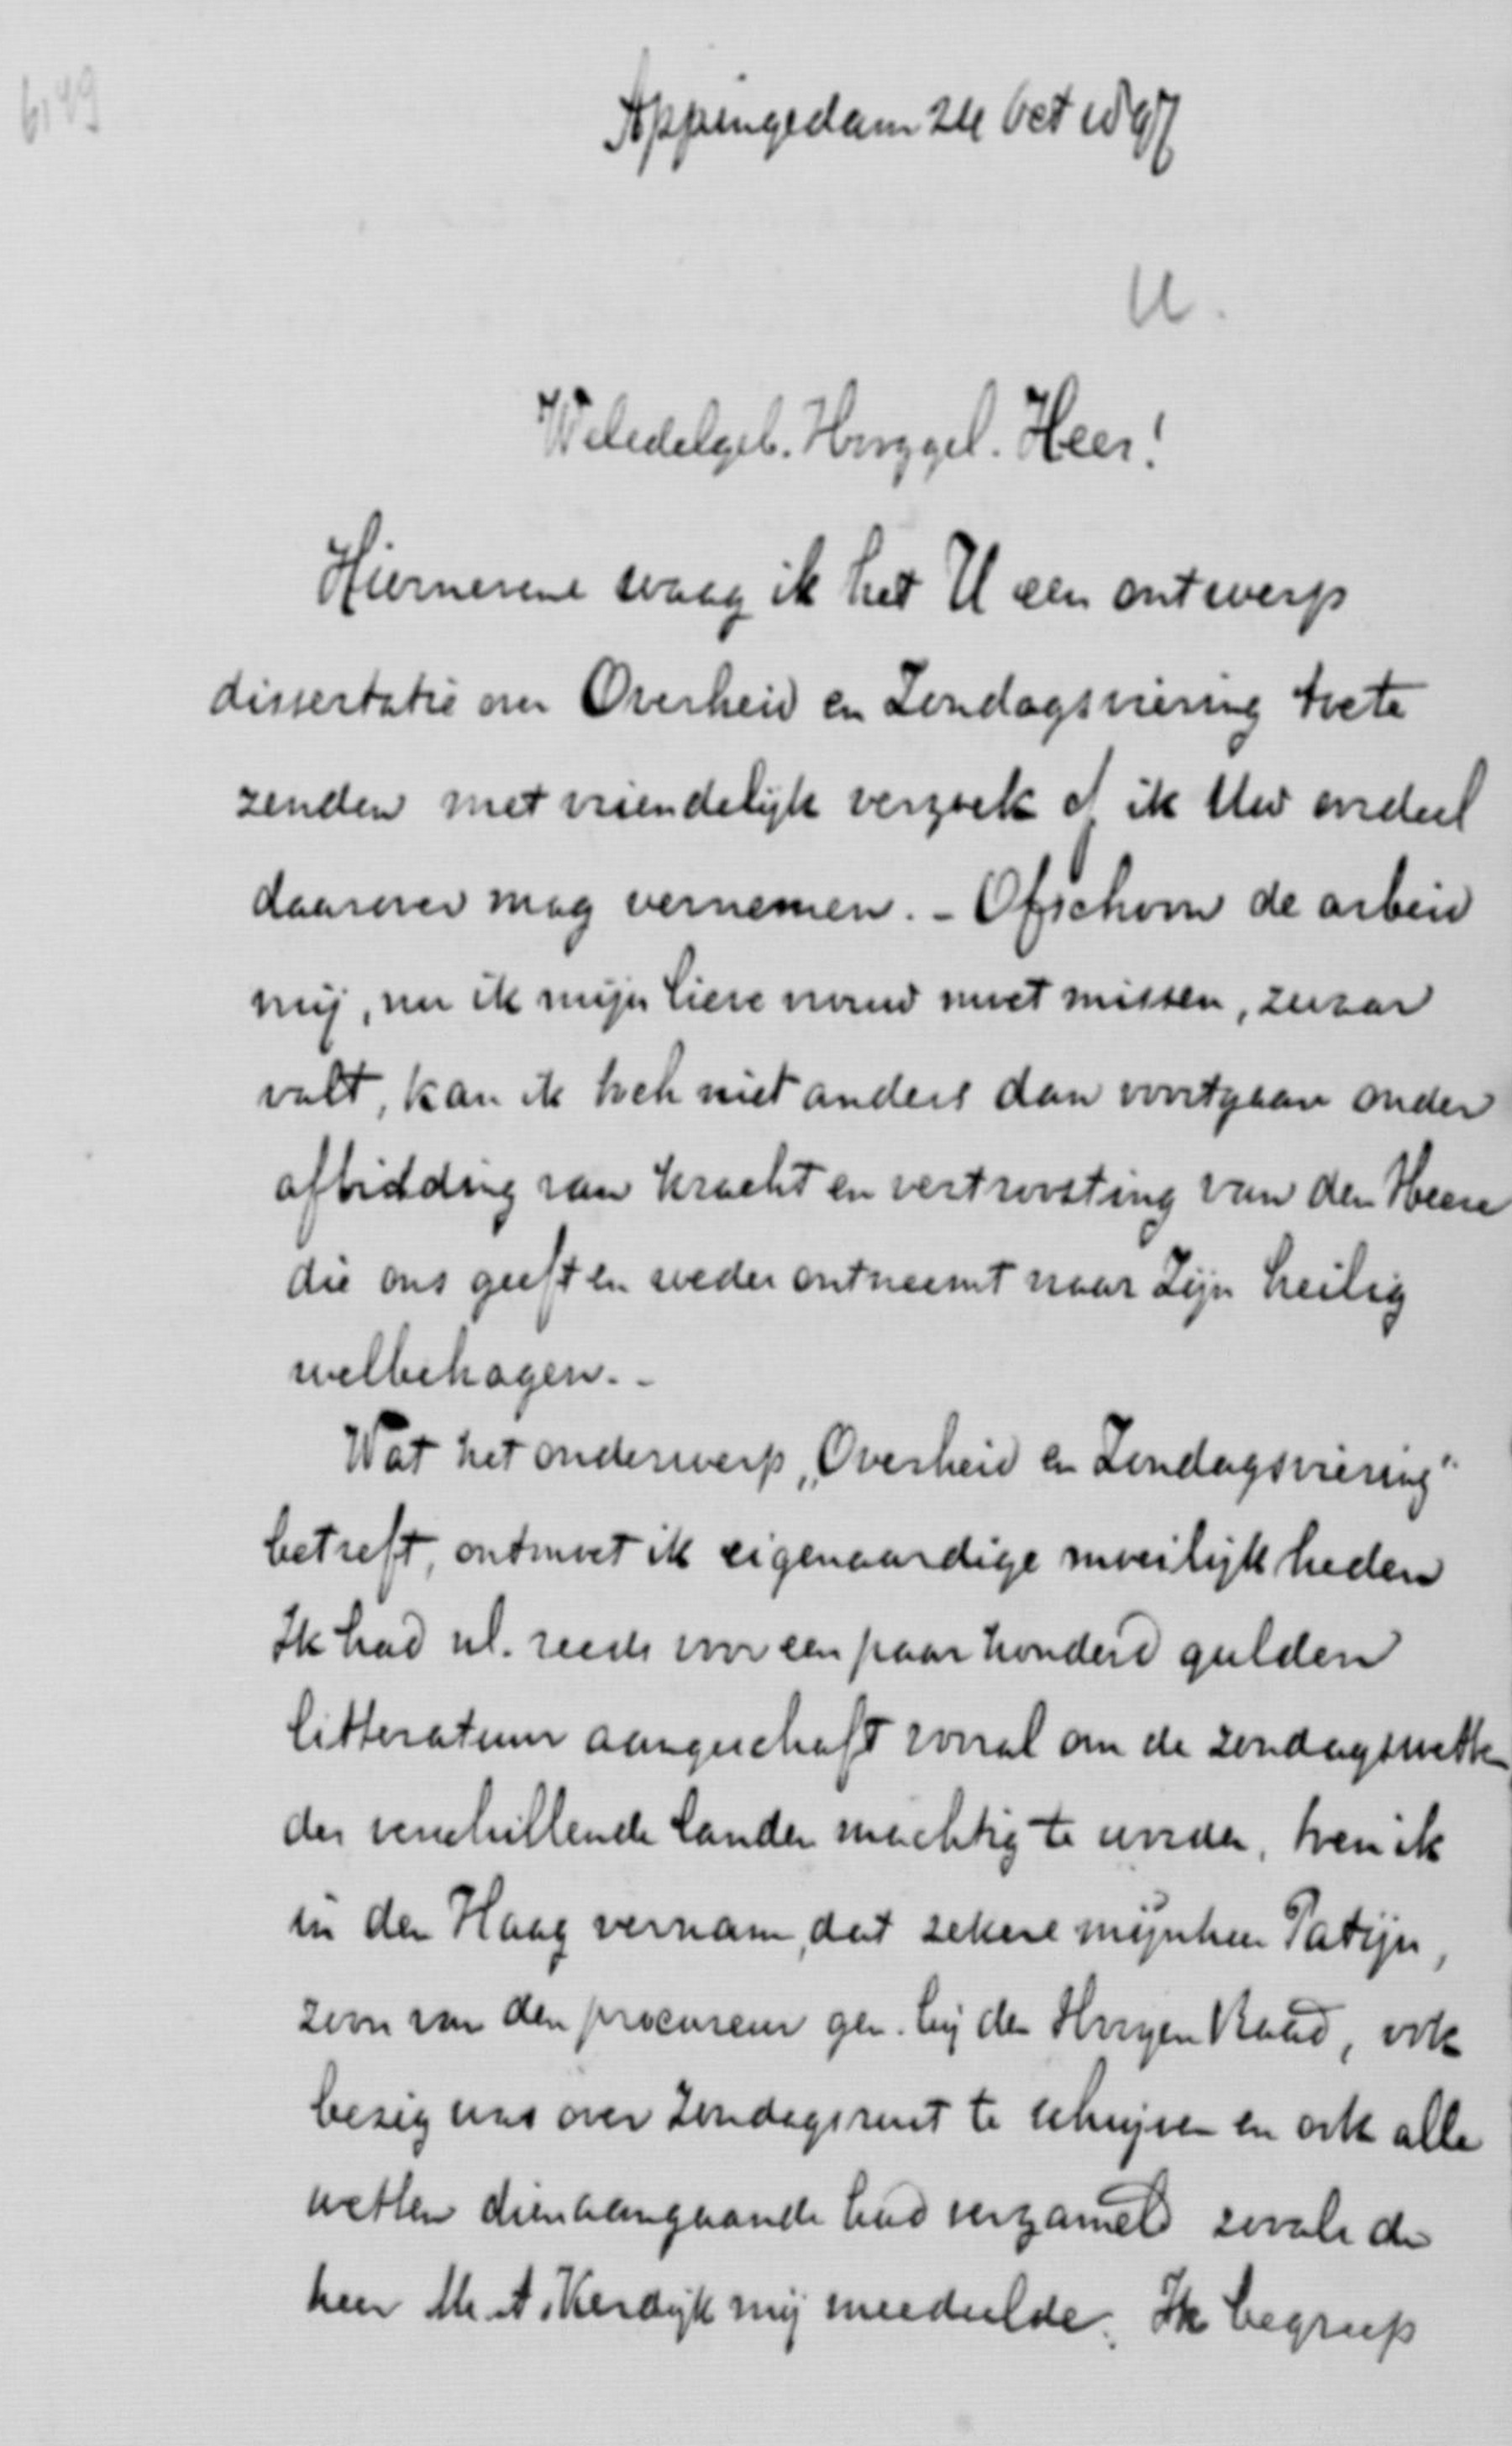 6149
Appingedam 24 Oct 1897
U.
Weledelgeb. Hooggel. Heer!
Hiernevens waag ik het U een ontwerp
dissertatie over Overheid en Zondagsviering toe te
zenden met vriendelijk verzoek of ik Uw oordeel
daarover mag vernemen. - Ofschoon de arbeid
mij, nu ik mijn lieve moet missen, zwaar
valt, kan ik toch niet anders dan voortgaan onder
afbidding van kracht en vertroosting van den Heere
die ons geeft en weder ontneemt naar Zijn heilig
welbehagen. -
Wat het onderwerp „Overheid en Zondagsviering"
betreft, ontmoet ik eigenaardige moeilijkheden
Ik had nl. reeds voor een paar honderd gulden
litteratuur aangeschaft vooral om de zondagswetten
der verschillende landen machtig te worden, toen ik
in den Haag vernam, dat zekere mijnheer Patijn,
zoon van den procureur gen. bij den Hoogen Raad, ook
bezig was over Zondagsrust te schrijven en ook alle
wetten dienaangaande had verzameld zooals de
heer Mr. A. Kerdijk mij meedeelde. Ik begreep